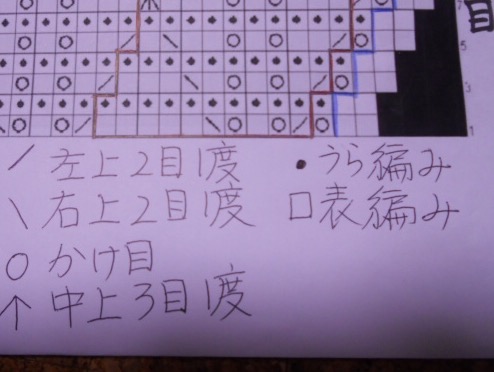 目
7
5
3
1
／ 左上2目1度
• うら編み
＼ 右上2目1度
□ 表編み
○ かけ目
↑ 中上3目1度